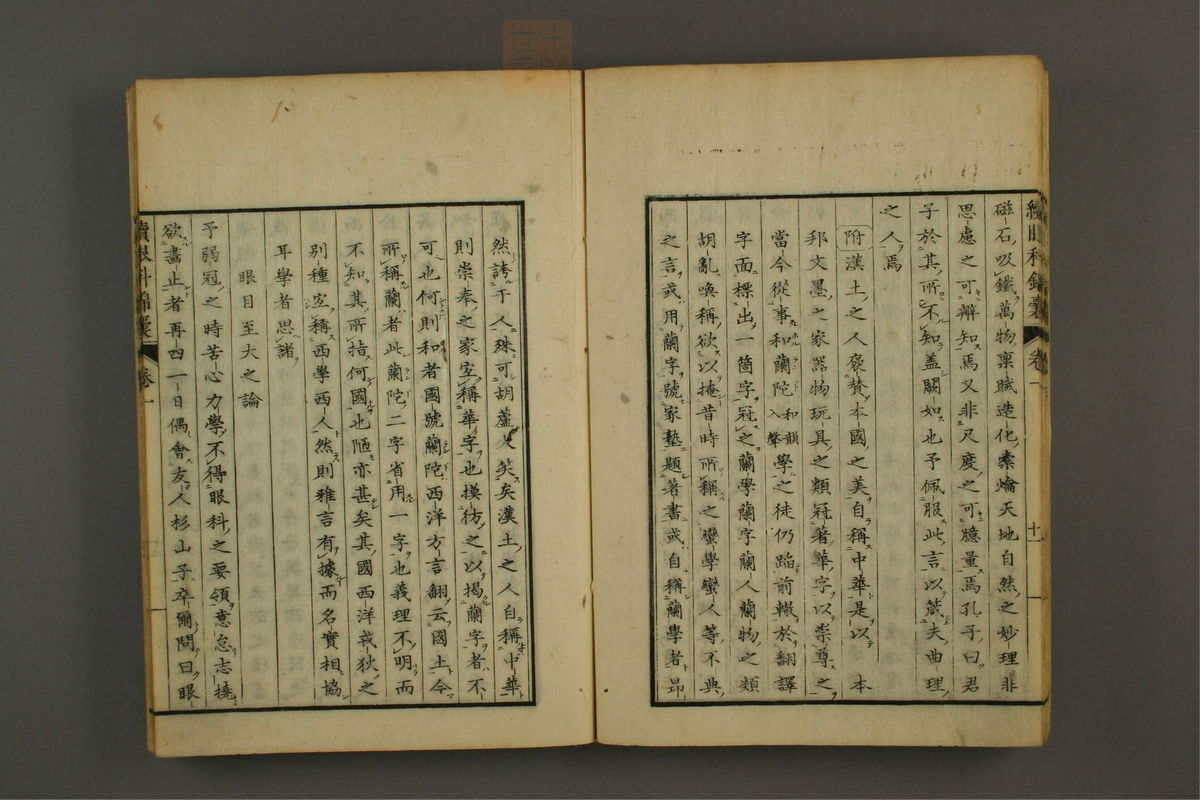 續眼科錦囊 卷一 十一
磁石吸鐵萬物稟賦造化橐爚天地自然之妙理非
思慮之可辨知焉又非尺度之可臆量焉孔子曰君
子於其所不知蓋闕如也予佩服此言以箴夫曲理
之人焉
附漢土之人褒賛本國之美自稱中華是以本
邦文墨之家器物玩具之類冠著華字以崇尊之
當今從事和蘭陀和韻入聲學之徒仍蹈前轍於翻譯
字面標出一箇字冠之蘭學蘭字蘭人蘭物之類
胡亂喚稱欲以掩昔時所稱之蠻學蠻人等不典
之言或用蘭字號家塾題著書或自稱蘭學者昂
然誇于人殊可胡蘆大笑矣漢土之人自稱中華
則崇奉之家宜稱華字也摸彷之以揭蘭字者不
可也何則和者國號蘭陀西洋方言翻云國土今
所稱蘭者此蘭陀二字省用一字也義理不明而
不知其所指何國也陋亦甚矣其國西洋戎狄之
別種宜稱西學西人然則雅言有據而名實相協
耳學者思諸
眼目至大之論
予弱冠之時苦心力學不得眼科之要領意怠志撓
欲畵止者再四一日偶會友人杉山子卒爾問曰眼
續眼科錦囊 卷一